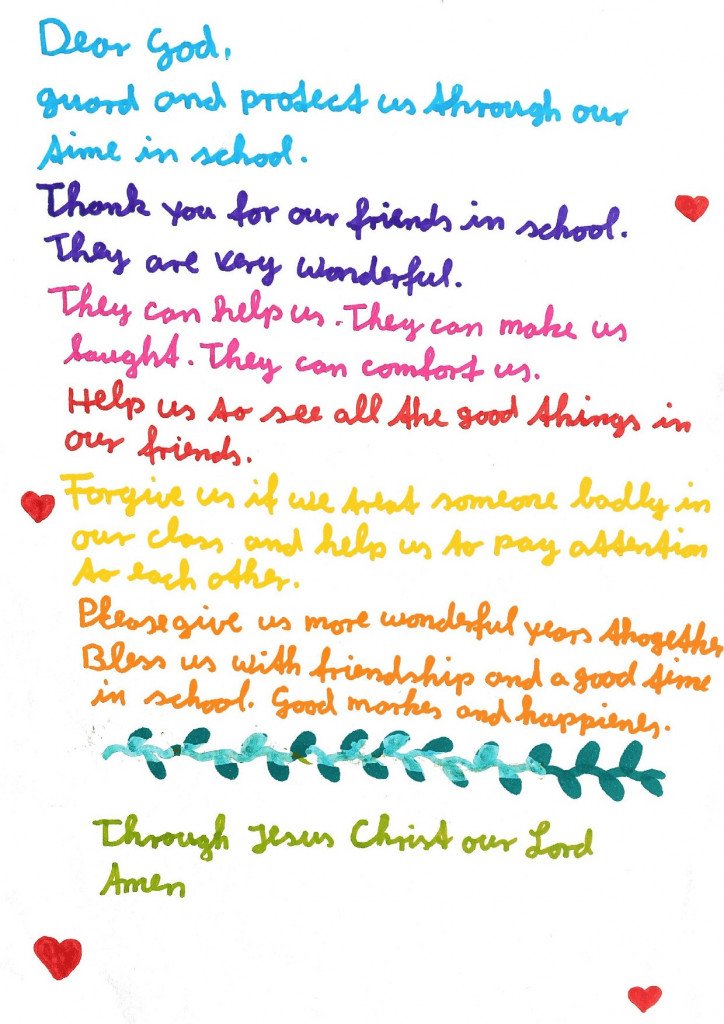 Dear God,
guard and protect us through our
time in school.
Thank you for our friends in school.
They are very wonderful.
They can help us. They can make us
laught. They can comfort us.
Help us to see all the good things in
our friends.
Forgive us if we treat someone badly in
our class and help us to pay attention
to each other.
Please give us more wonderful years thogether
Bless us with friendship and a good time
in school. Good markes and happienes.
Through Jesus Christ our Lord
Amen